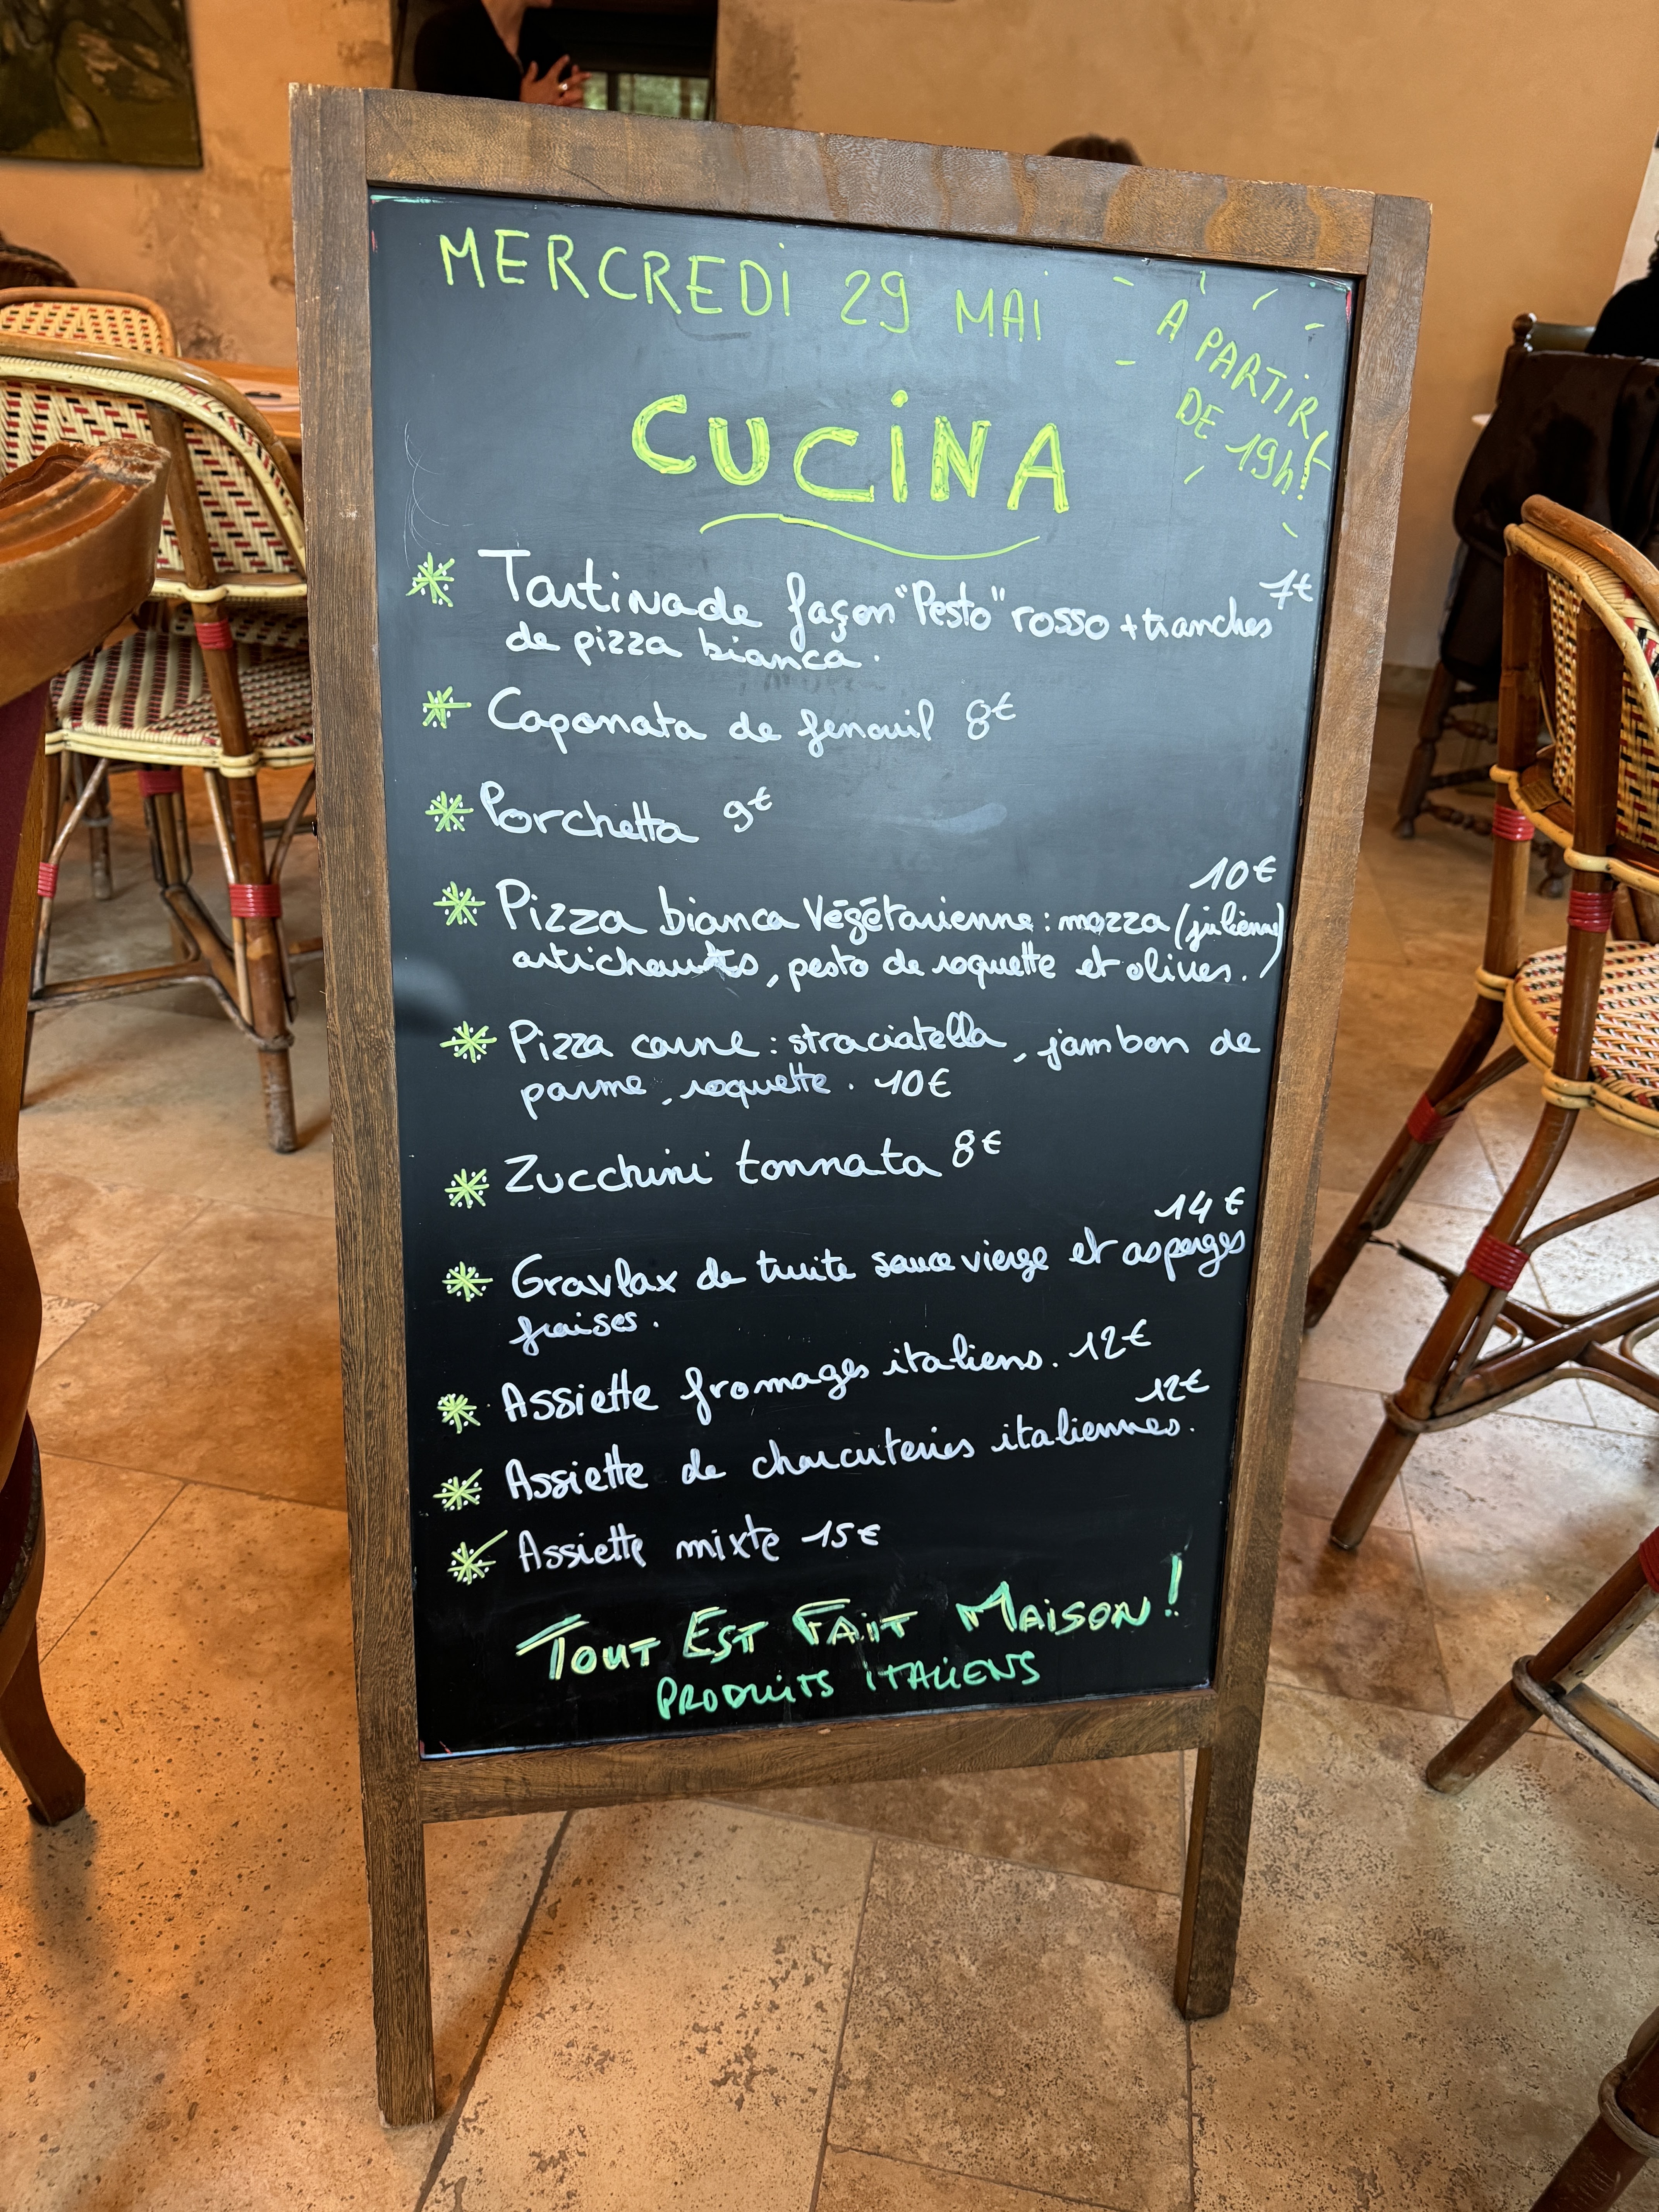 MERCREDI 29 MAI
À PARTIR
DE 19h!
CUCINA
Tartinade façon "Pesto" rosso + tranches 7€
de pizza bianca.
Caponata de fenouil 8€
Porchetta 9€
10€
Pizza bianca Végétarienne : mozza (julienne)
artichauts, pesto de roquette et olives.
Pizza carne : straciatella, jambon de
parme, roquette. 10€
Zucchini tonnata 8€
14€
Gravlax de truite sauce vierge et asperges
fraises.
Assiette fromages italiens. 12€
12€
Assiette de charcuteries italiennes.
Assiette mixte 15€
TOUT EST FAIT MAISON!
PRODUITS ITALIENS